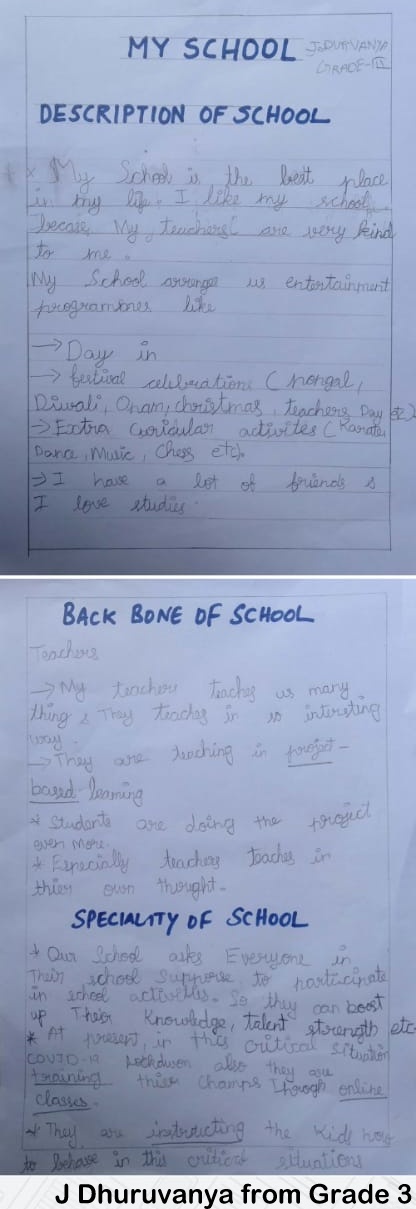 MY SCHOOL
J.DURVANYA
GRADE-III
DESCRIPTION OF SCHOOL
* My School is the best place
in my life. I like my school
becase My teachers are very kind
to me.
My School arranges us entertainment
programmes like
→ Day in
→ festival celebration (pongal,
Diwali, Onam, christmas, teachers Day etc.)
→ Extra Curicular activites (Karate,
Dance, Music, Chess etc).
→ I have a lot of friends &
I love studies.
BACK BONE OF SCHOOL
Teachers
→ My teachers teaches us many
thing & They teaches in so intersting
way.
→ They are teaching in project-
based learning
* Students are doing the project
even more.
* Especially teachers teaches in
thier own thought.
SPECIALITY OF SCHOOL
* Our School asks Everyone in
Their school to participate
in school activities. So they can boost
up Their Knowledge, talent strength etc
* At present, in this critical situation
COVID-19 Lockdwon also they are
training thier Champs Through online
classes.
* They are instructing the kids how
to behave in this critical situations
J Dhuruvanya from Grade 3